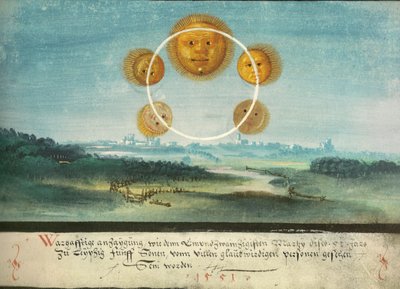 Warhafftige anzaygung, wie dem Ainundzwaintzigisten Martzy dises 51 Jars
Zu Leyptzig Fünff Sonen, vonn villen glaubwirdigen personen gesehen
Sein worden
1551